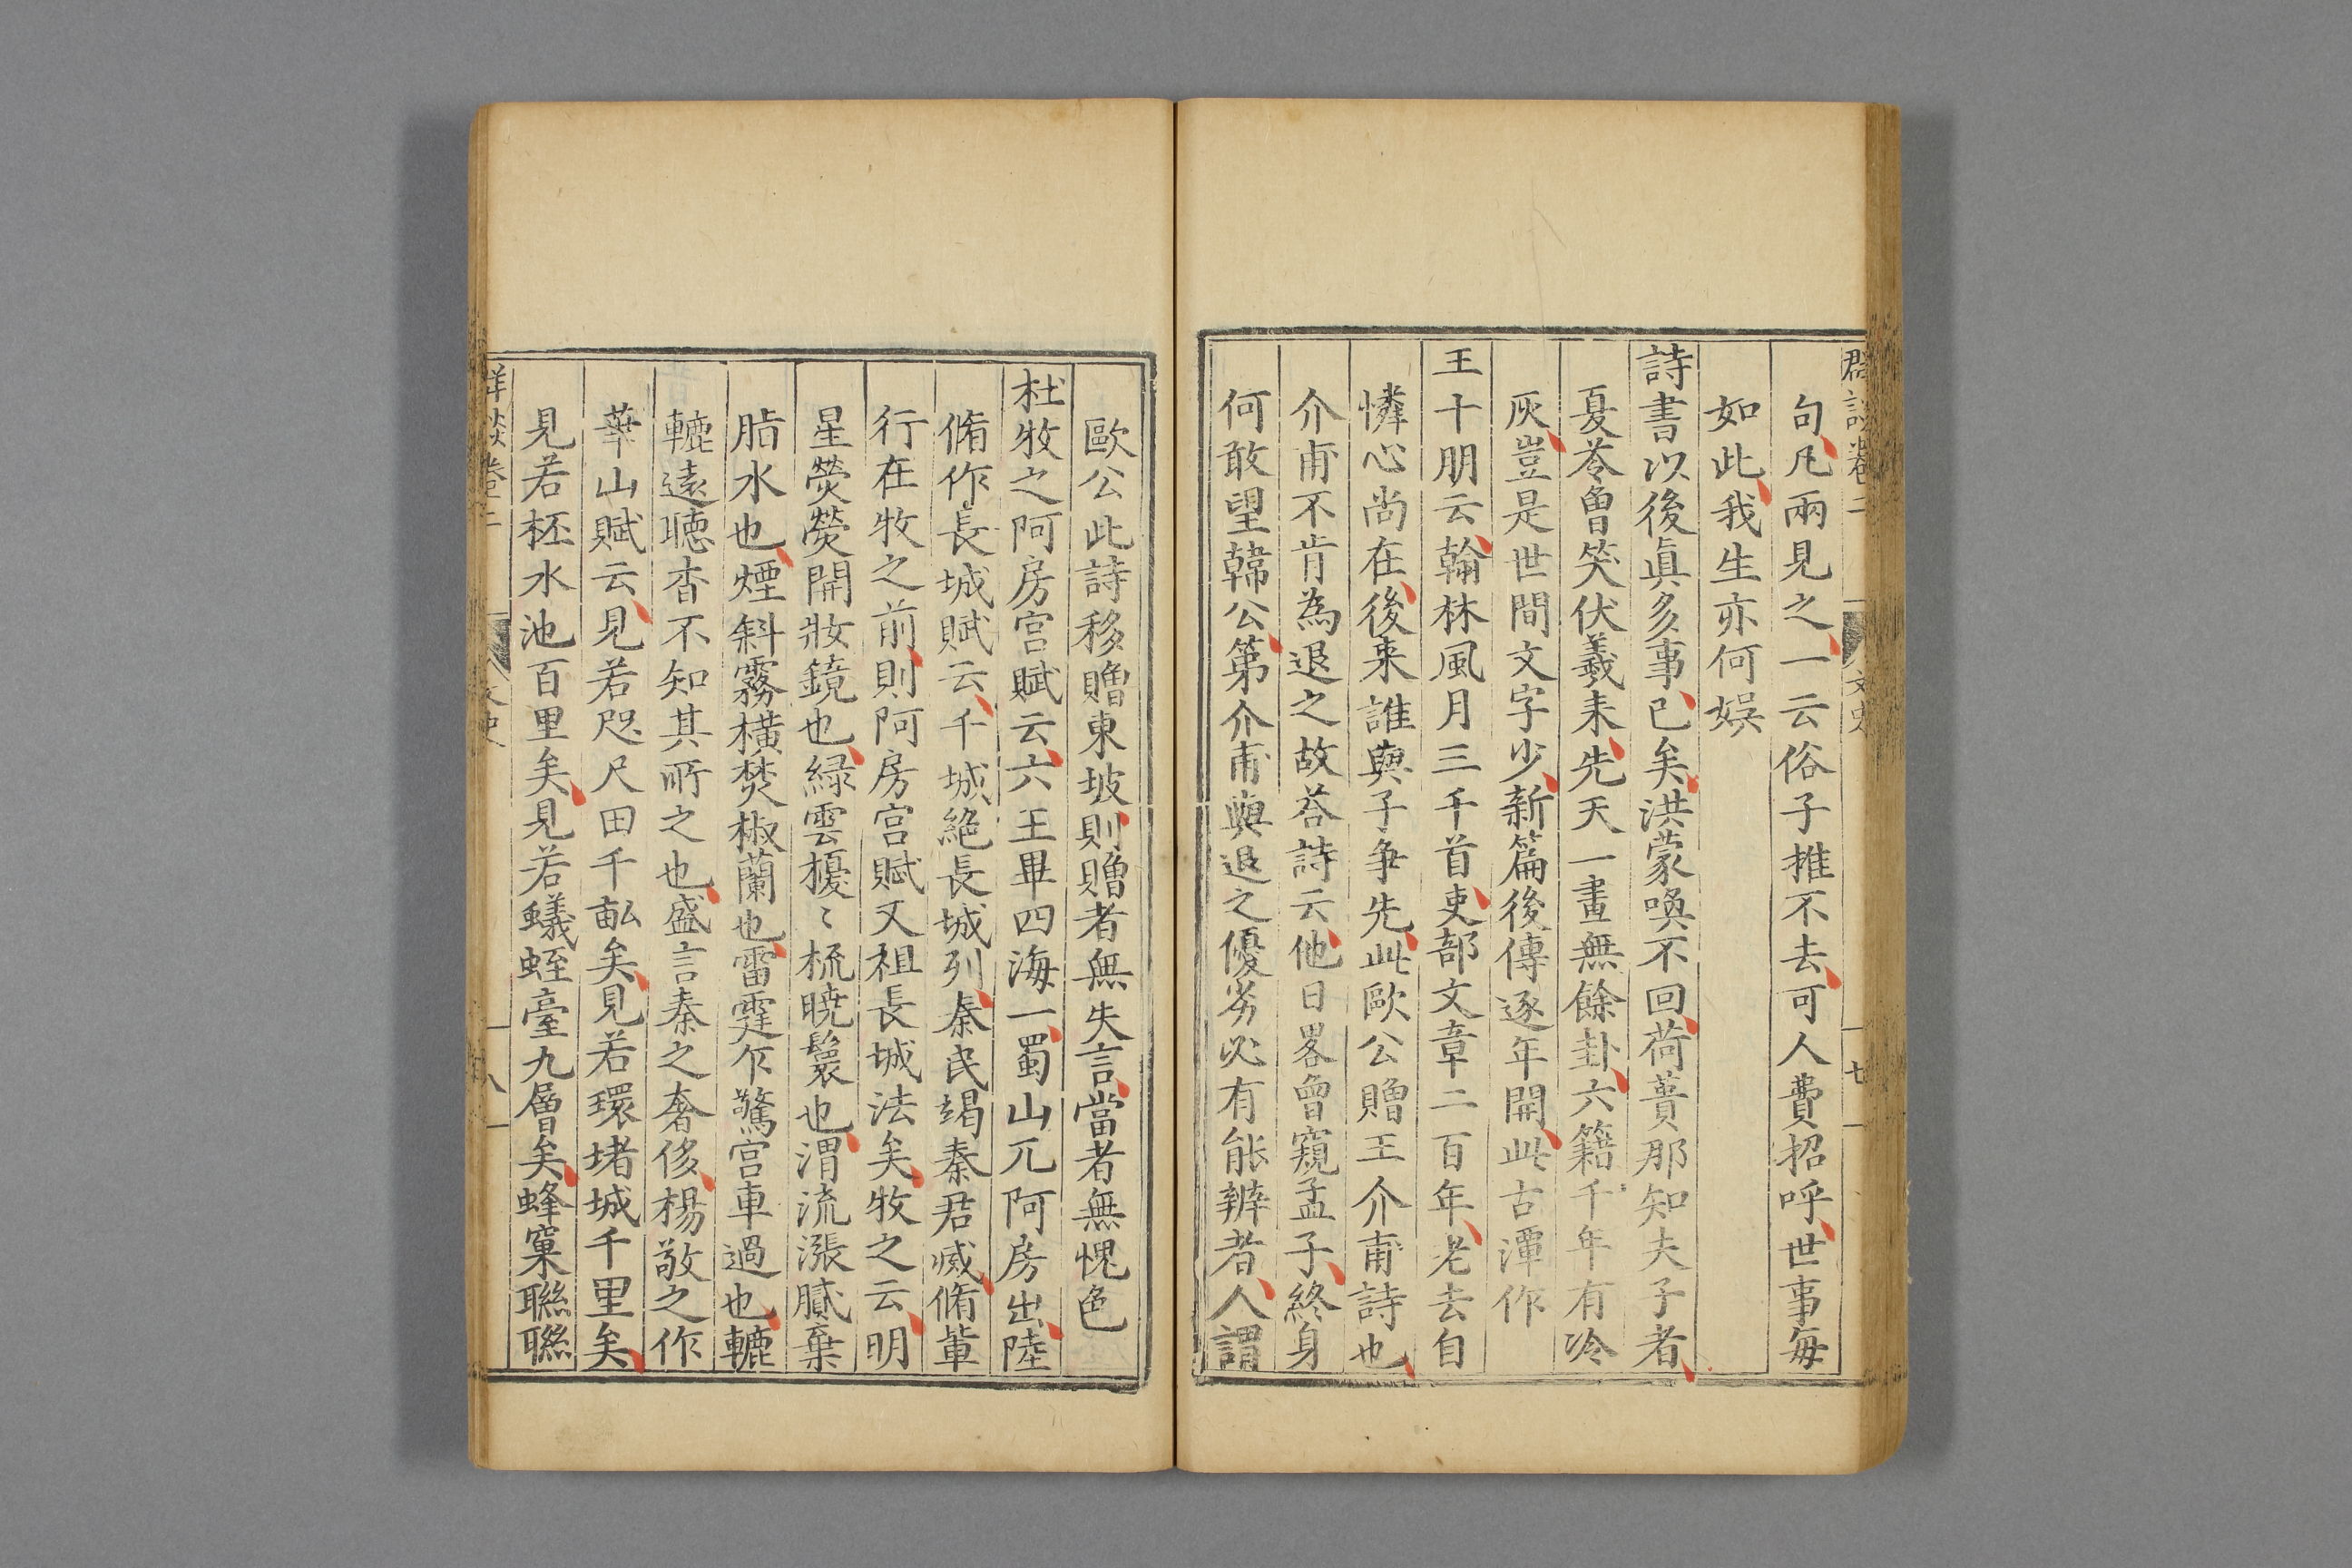 群談卷二 文史 七
句凡兩見之一云俗子推不去可人費招呼世事每
如此我生亦何娯
詩書以後眞多事已矣洪蒙喚不回荷蕢那知夫子者
戛苓魯笑伏羲耒先天一畫無餘卦六籍千年有冷
灰豈是世間文字少新篇後傳逐年開此古潭作
王十朋云翰林風月三千首吏部文章二百年老去自
憐心尚在後来誰與子爭先此歐公贈王介甫詩也
介甫不肯為退之故荅詩云他日畧曾窺孟子終身
何敢望韓公第介甫與退之優劣必有能辨者人謂
歐公此詩移贈東坡則贈者無失言當者無愧色
杜牧之阿房宫賦云六王畢四海一蜀山兀阿房出陸
脩作長城賦云千城絶長城列秦民竭秦君滅脩輩
行在牧之前則阿房宫賦又祖長城法矣牧之云明
星熒熒開妝鏡也緑雲擾〻梳曉鬟也渭流漲膩棄
脂水也煙斜霧橫焚椒蘭也雷霆乍驚宫車過也轆
轆遠聽杳不知其所之也盛言秦之奢侈楊敬之作
華山賦云見若咫尺田千畝矣見若環堵城千里矣
見若杯水池百里矣見若蟻蛭臺九層矣蜂窠聯聯
羣談卷二 文史 八